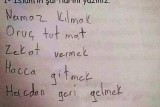 1- İslam'ın şartlarını yazınız.
Namaz Kılmak
Oruç tutmat
Zekat vermek
Hacca gitmek
Hacdan geri gelmek